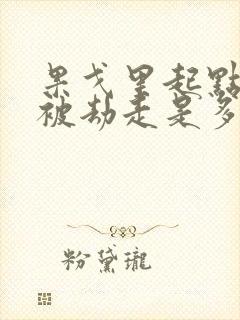 果戈里起點
被劫走是多
粉黛瓏